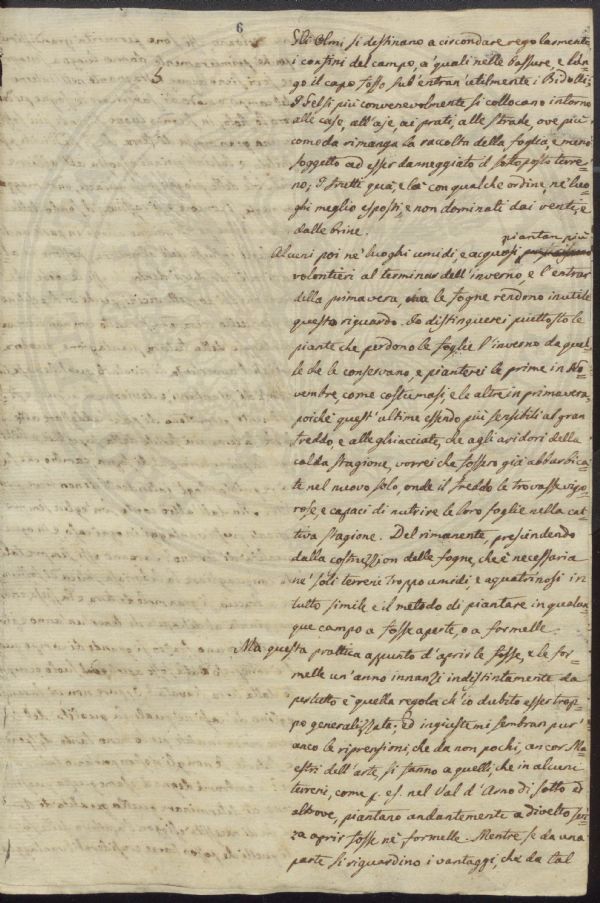 6
Gli Olmi si destinano a circondare regolarmente
i confini del campo, a' quali nelle bassure, e lun=
go il capo fosso sub'entran' utilmente i Bidolli;
I Gelsi più convenevolmente si collocano intorno
alle case, all'aje, ai prati, alle strade, ove più
comoda rimanga la raccolta della foglia, e meno
soggetto ad esser danneggiato il sottoposto terre=
no; I frutti quà, e là con qualche ordine, ne' luo=
ghi meglio esposti, e non dominati dai venti, e
dalle brine.
piantan più
Alcuni poi ne' luoghi umidi, e acquosi
volontieri al terminar dell'inverno, e l'entrar
della primavera, ma le fogne rendono inutile
questo riguardo. Io distinguerei piuttosto le
piante che perdono le foglie l'inverno da quel=
le che le conservano, e pianterei le prime in No=
vembre, come costumasi, e le altre in primavera,
poichè quest'ultime essendo più sensibili al gran
freddo, e alle ghiacciate, che agli aridori della
calda stagione, vorrei che fossero già abbarbica=
te nel nuovo solo, onde il freddo le trovasse vigo=
rose, e capaci di nutrire le loro foglie nella cat=
tiva stagione. Del rimanente, prescindendo
dalla costruzzion delle fogne, che è necessaria
ne' soli terreni troppo umidi, e aquatrinosi in
tutto simile è il metodo di piantare in qualun=
que campo a fosse aperte, o a formelle.
Ma questa prattica appunto d'aprir le fosse, e le for=
melle un'anno innanzi indistintamente da
pertutto è quella regola ch'io dubito esser trop=
po generalizzata; ed ingiuste mi sembran pur'
anco le riprensioni, che da non pochi, ancor Ma=
estri dell'arte, si fanno a quelli, che in alcuni
terreni, come p. es. nel Val d'Arno di sotto ed
altrove, piantano andantemente a divelto sen=
za aprir fosse nè formelle. Mentre se da una
parte si riguardino i vantaggi, che da tal